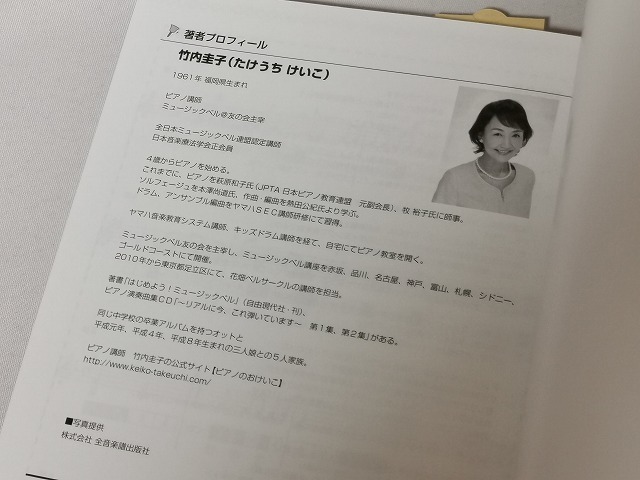 著者プロフィール
竹内圭子（たけうち けいこ）
1961年 福岡県生まれ
ピアノ講師
ミュージックベル＠友の会主宰
全日本ミュージックベル連盟認定講師
日本音楽療法学会正会員
4歳からピアノを始める。
これまでに、ピアノを萩原和子氏（JPTA 日本ピアノ教育連盟　元副会長）、牧 裕子氏に師事。
ソルフェージュを本澤尚道氏、作曲・編曲を熱田公紀氏より学ぶ。
ドラム、アンサンブル編曲をヤマハSEC講師研修にて習得。
ヤマハ音楽教育システム講師、キッズドラム講師を経て、自宅にてピアノ教室を開く。
ミュージックベル友の会を主宰し、ミュージックベル講座を赤坂、品川、名古屋、神戸、富山、札幌、シドニー、
ゴールドコーストにて開催。
2010年から東京都足立区にて、花畑ベルサークルの講師を担当。
著書「はじめよう！ミュージックベル」（自由現代社・刊）、
ピアノ演奏曲集CD「〜リアルに今、これ弾いています〜　第1集、第2集」がある。
同じ中学校の卒業アルバムを持つオットと
平成元年、平成4年、平成8年生まれの三人娘との5人家族。
ピアノ講師　竹内圭子の公式サイト【ピアノのおけいこ】
http://www.keiko-takeuchi.com/
■写真提供
株式会社 全音楽譜出版社